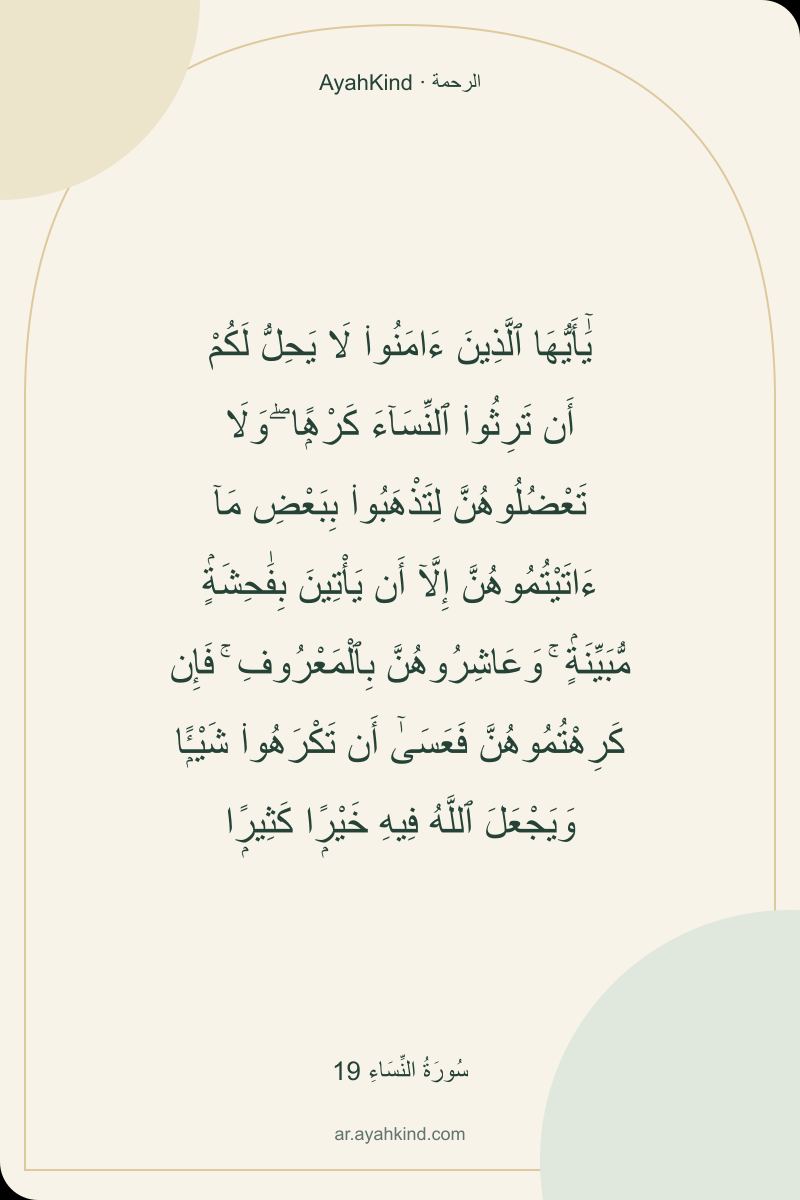 AyahKind · الرحمة
يَٰٓأَيُّهَا ٱلَّذِينَ ءَامَنُوا۟ لَا يَحِلُّ لَكُمْ
أَن تَرِثُوا۟ ٱلنِّسَآءَ كَرْهًۭا ۖ وَلَا
تَعْضُلُوهُنَّ لِتَذْهَبُوا۟ بِبَعْضِ مَآ
ءَاتَيْتُمُوهُنَّ إِلَّآ أَن يَأْتِينَ بِفَٰحِشَةٍۢ
مُّبَيِّنَةٍۢ ۚ وَعَاشِرُوهُنَّ بِٱلْمَعْرُوفِ ۚ فَإِن
كَرِهْتُمُوهُنَّ فَعَسَىٰٓ أَن تَكْرَهُوا۟ شَيْـًۭٔا
وَيَجْعَلَ ٱللَّهُ فِيهِ خَيْرًۭا كَثِيرًۭا
سُورَةُ النِّسَاءِ 19
ar.ayahkind.com